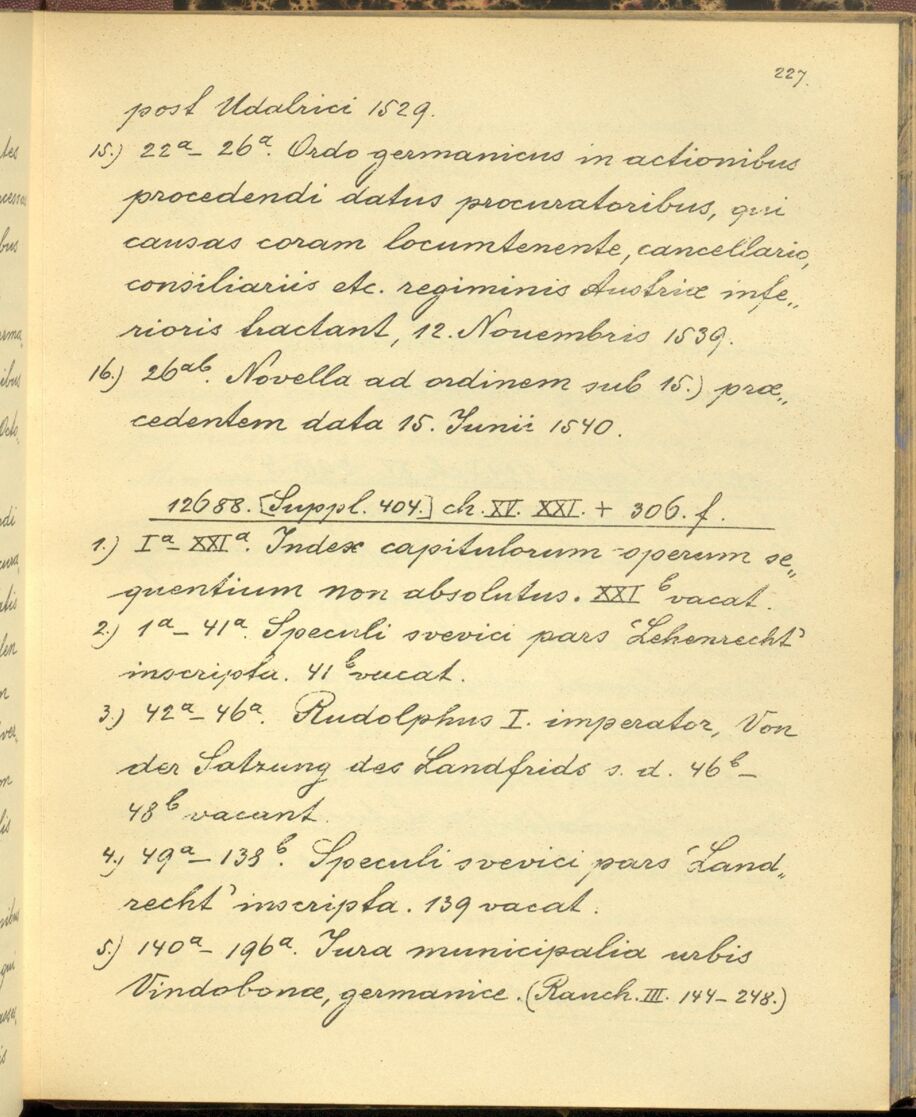 227.
post Udalrici 1529.
15.) 22a_ 26a. Ordo germanicus in actionibus
procedendi datus procuratoribus, qui
causas coram locumtenente, cancellario,
consiliariis etc. regiminis Austriæ infe„
rioris tractant, 12. Nouembris 1539.
16.) 26ab. Novella ad ordinem sub 15.) præ„
cedentem data 15. Junii 1540.
12688. [Suppl. 404.] ch. XV. XXI. + 306. f.
1.) Ia_ XXIa. Index capitulorum operum se„
quentium non absolutus. XXI b vacat.
2.) 1a_ 41a. Speculi svevici pars 'Lehenrecht'
inscripta. 41 b vacat.
3.) 42a_ 46a. Rudolphus I. imperator, Von
der Satzung des Landfrids s. d. 46b_
48b vacant.
4.) 49a_ 138b. Speculi svevici pars 'Land„
recht' inscripta. 139 vacat.
5.) 140a_ 196a. Jura municipalia urbis
Vindobonæ, germanice. (Rauch. III. 144_ 248.)